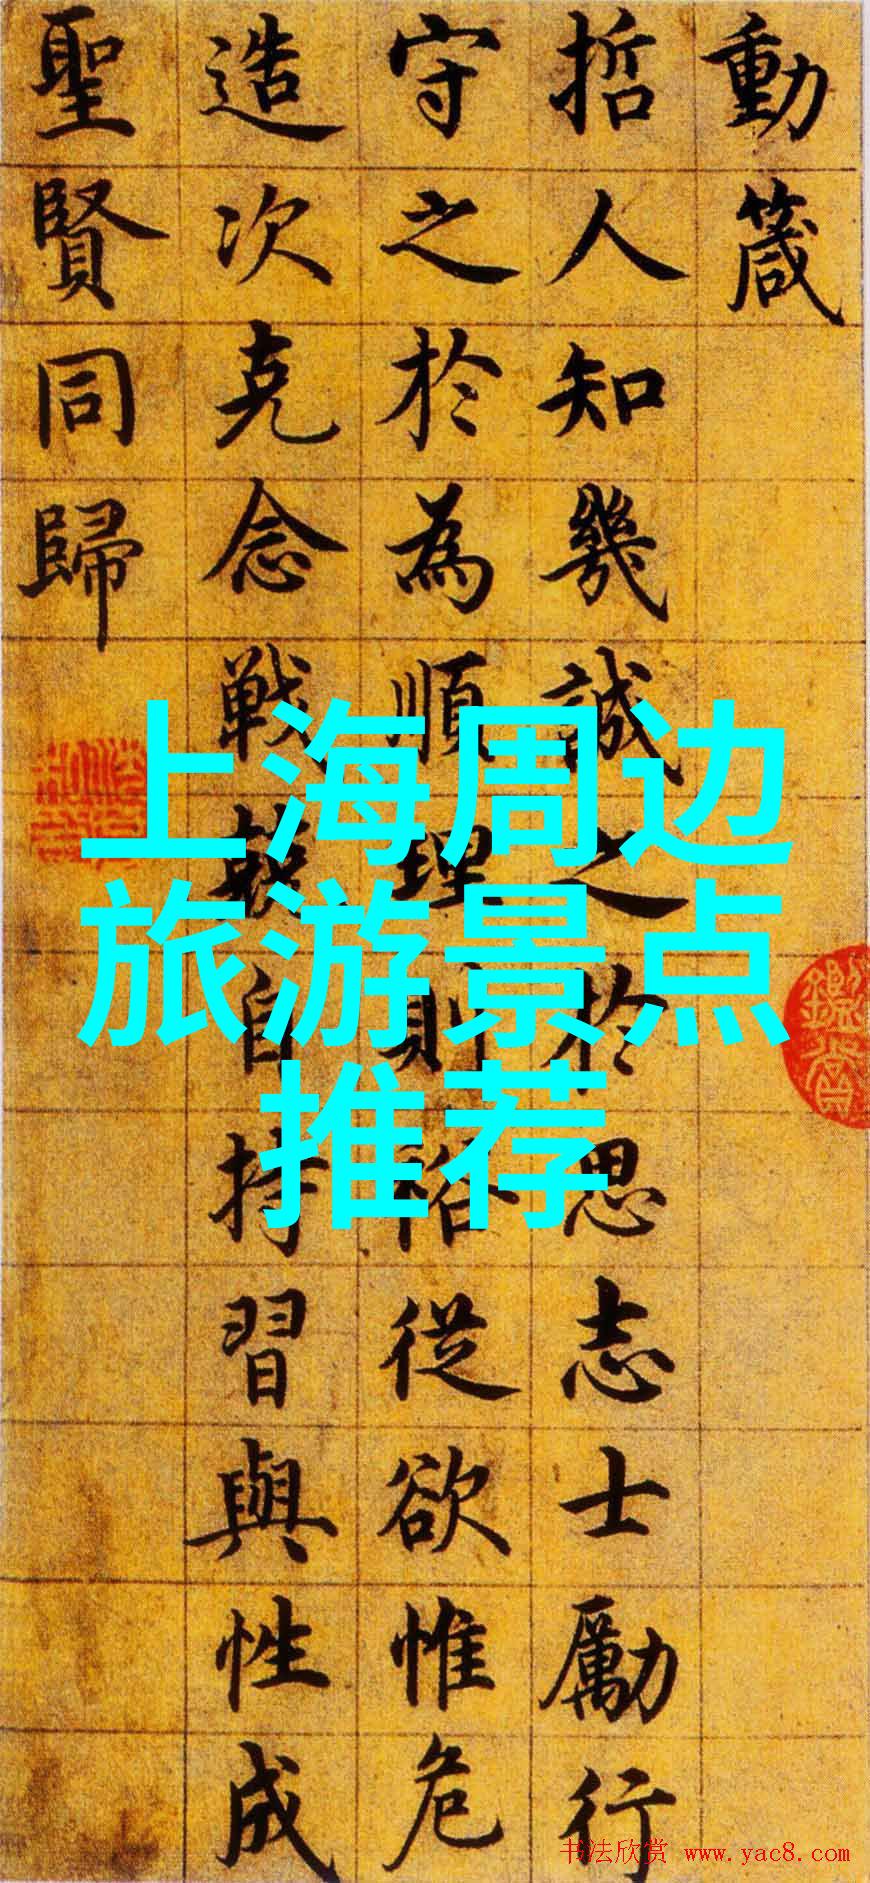 動箴
哲人知幾誠之於思志士勵行
守之於為順理則裕從欲惟危
造次克念戰兢自持習與性成
聖賢同歸
上海周边
旅游景点
推荐
书法欣赏 www.yac8.com